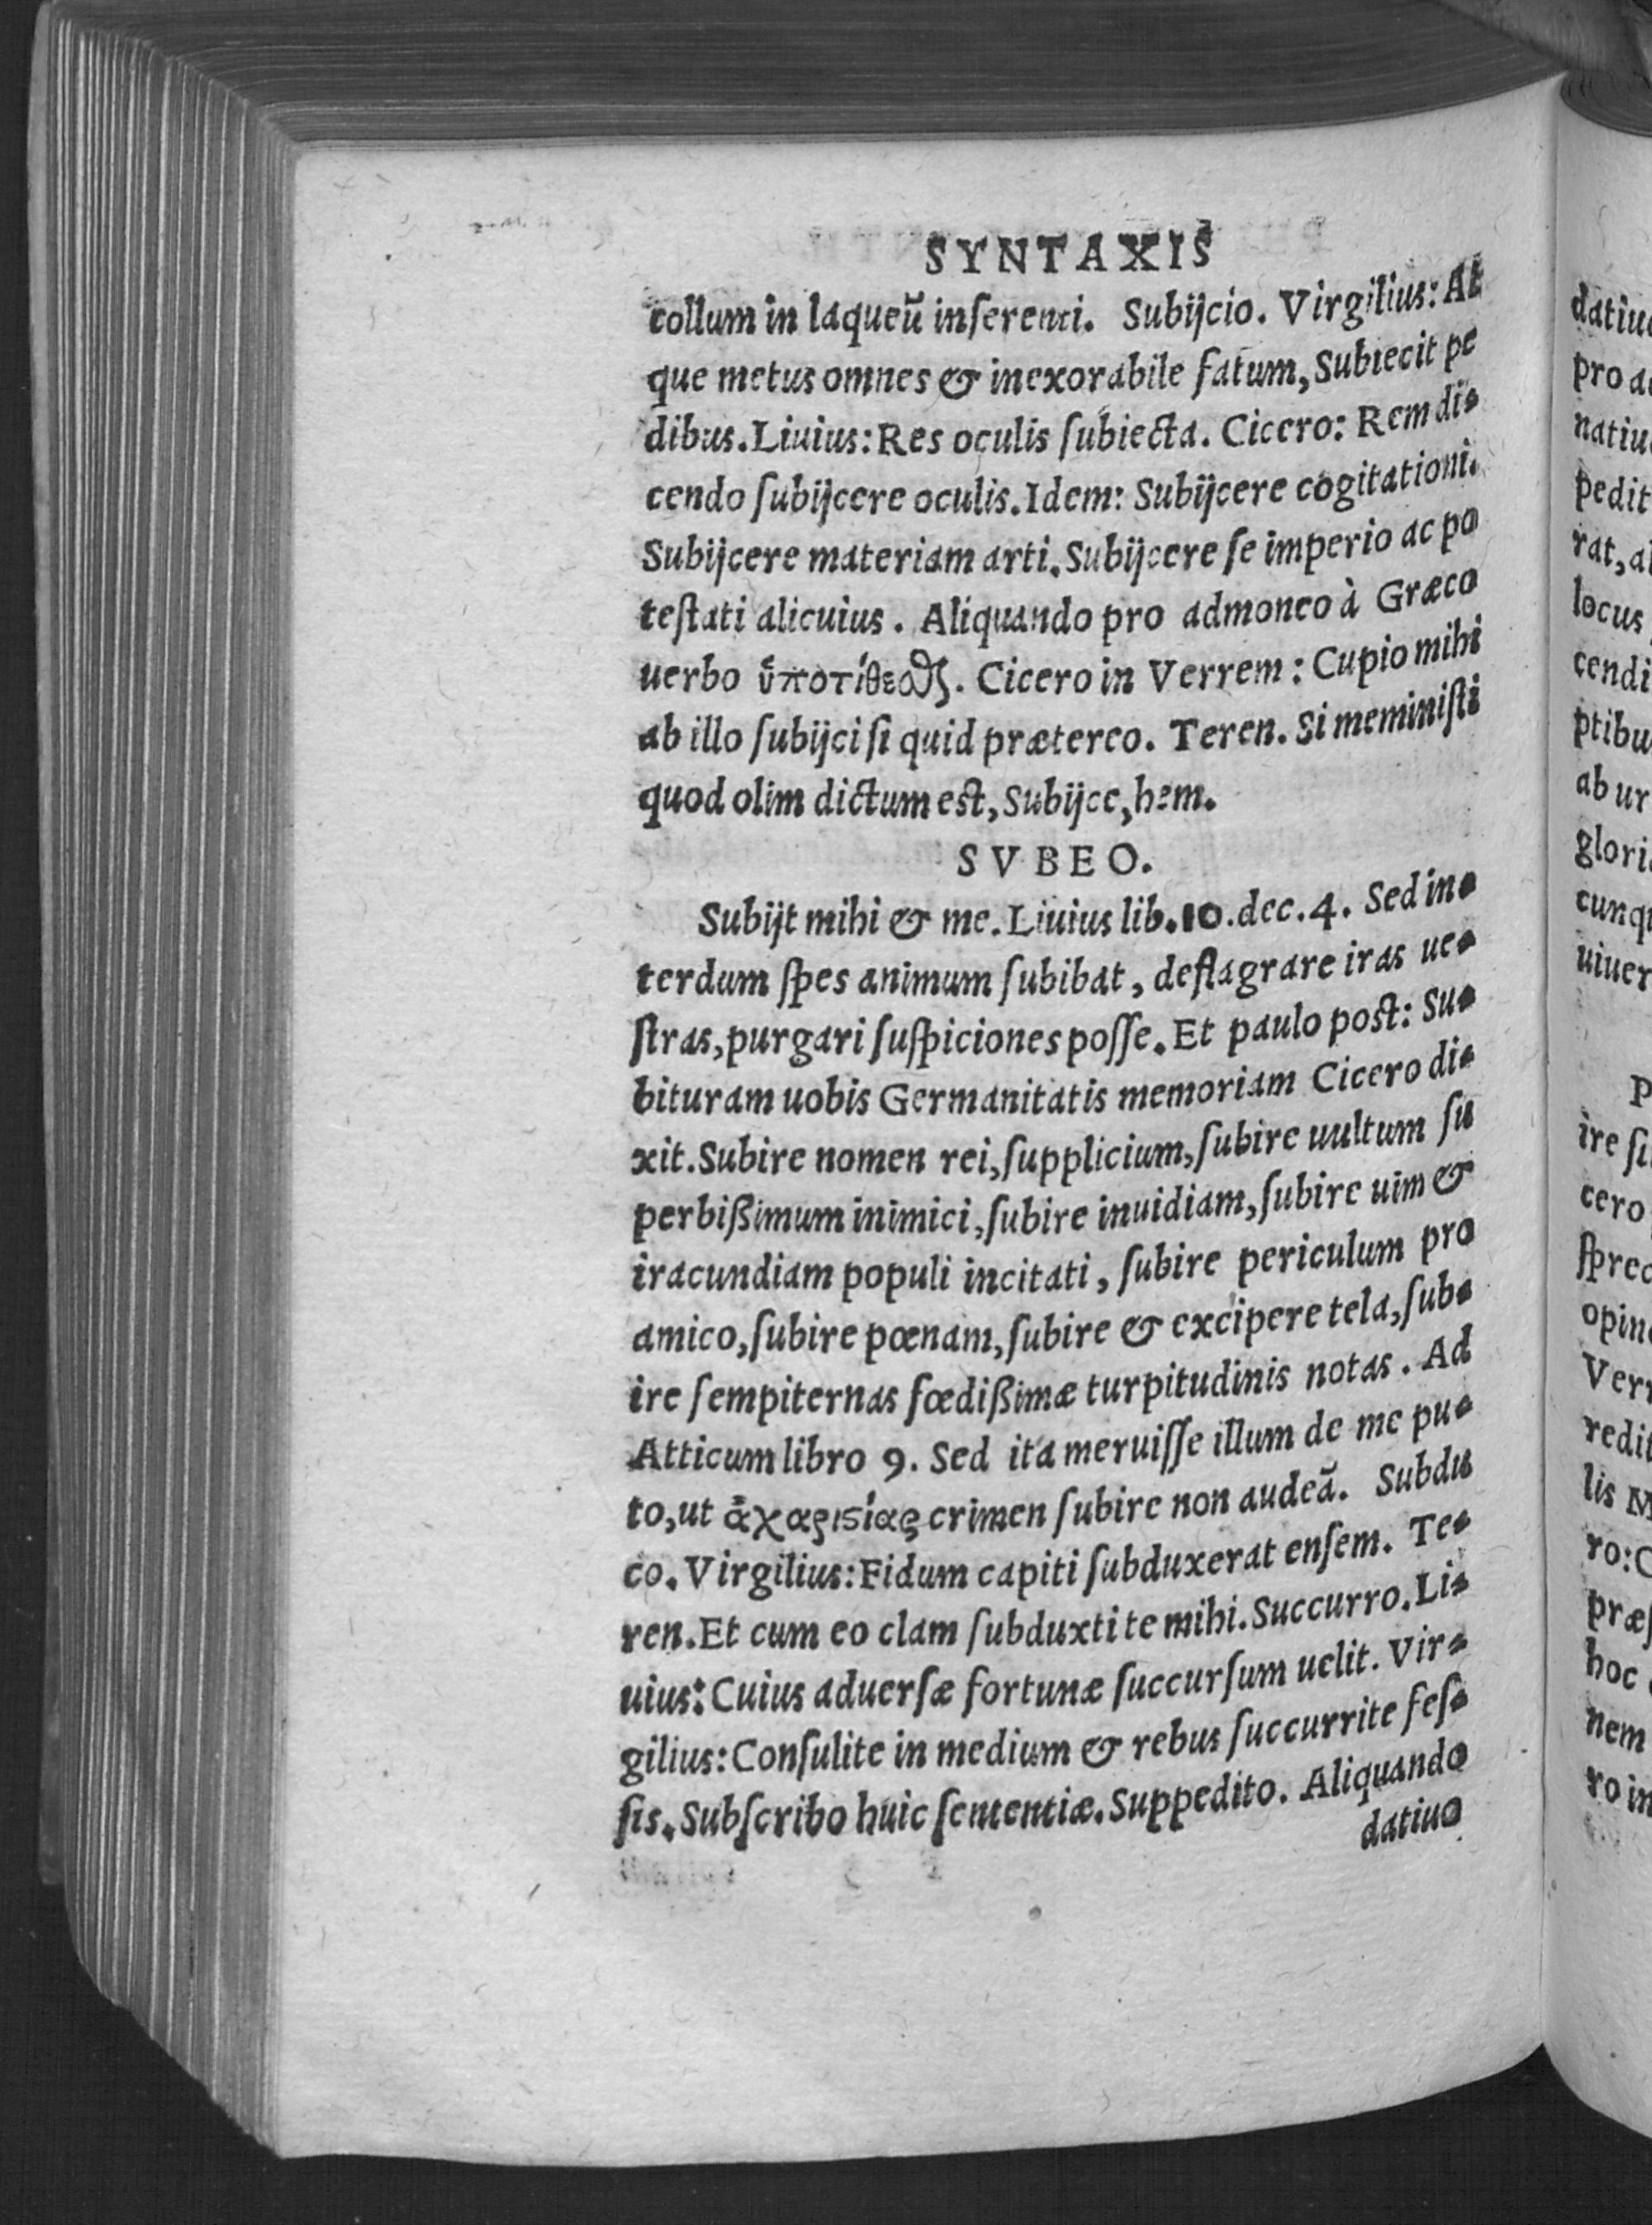 SYNTAXIS
collum in laqueū inſerenti. Subijcio. Virgilius: At
que metus omnes & inexorabile fatum, Subiecit pe
dibus. Liuius: Res oculis ſubiecta. Cicero: Rem di-
cendo ſubijcere oculis. Idem: Subijcere cogitationi.
Subijcere materiam arti. Subijcere ſe imperio ac po
teſtati alicuius. Aliquando pro admoneo à Græco
uerbo ὑποτίθεσθαι. Cicero in Verrem: Cupio mihi
ab illo ſubijci ſi quid prætereo. Teren. Si meminiſti
quod olim dictum est, Subijce, hem.
SVBEO.
Subijt mihi & me. Liuius lib. 10. dec. 4. Sed in-
terdum ſpes animum ſubibat, deflagrare iras ue-
ſtras, purgari ſuſpiciones poſſe. Et paulo post: Su-
bituram uobis Germanitatis memoriam Cicero di-
xit. Subire nomen rei, ſupplicium, ſubire uultum ſu
perbißimum inimici, ſubire inuidiam, ſubire uim &
iracundiam populi incitati, ſubire periculum pro
amico, ſubire pœnam, ſubire & excipere tela, ſub-
ire ſempiternas fœdißimæ turpitudinis notas. Ad
Atticum libro 9. Sed ita meruiſſe illum de me pu-
to, ut ἀχαριστίας crimen ſubire non audeā. Subdu
co. Virgilius: Fidum capiti ſubduxerat enſem. Te-
ren. Et cum eo clam ſubduxti te mihi. Succurro. Li-
uius: Cuius aduerſæ fortunæ ſuccurſum uelit. Vir-
gilius: Conſulite in medium & rebus ſuccurrite feſ-
ſis. Subſcribo huic ſententiæ. Suppedito. Aliquando
datiuo